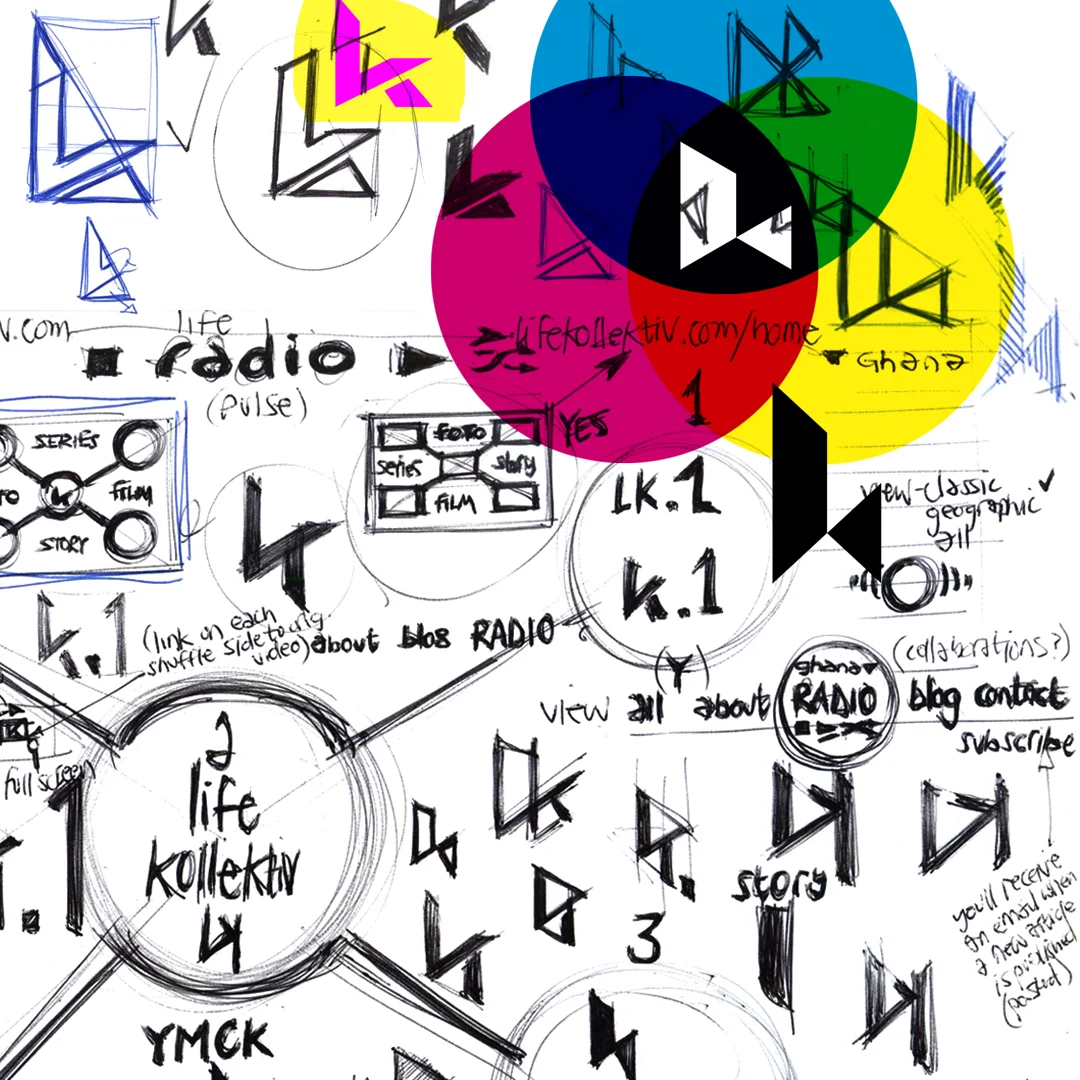 v.com
life
radio
(pulse)
lifekollektiv.com/home
Ghana
1
YES
SERIES
FILM
STORY
FOTO
series
story
FILM
LK.1
K.1
view-classic
geographic
all
K.1
(link on each
video)
about blog RADIO
(Y)
(collaborations?)
view all about
ghana
RADIO
blog contact
subscribe
full screen
a
life
kollektiv
.1
story
3
you'll receive
an email when
a new article
is published
(posted)
YMCK